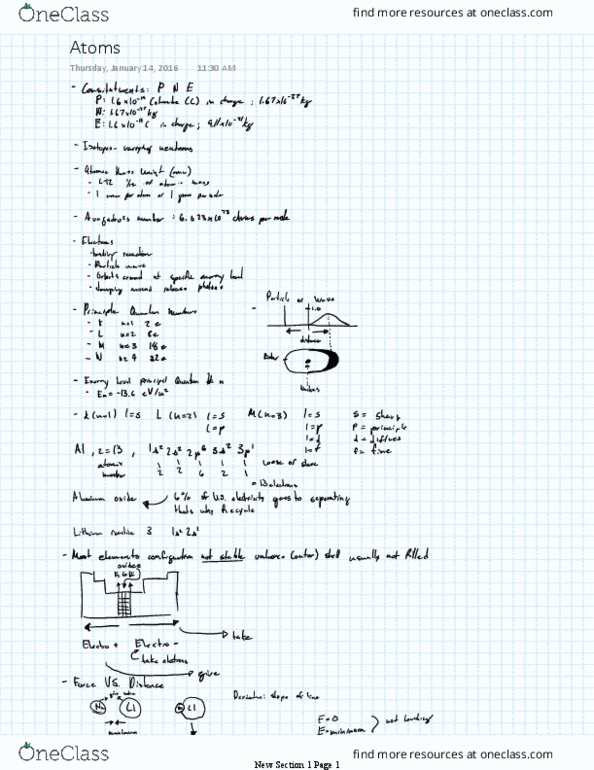 OneClass
find more resources at oneclass.com
Atoms
Thursday, January 14, 2016 11:30 AM
- Constituents: P N E
P: 1.6x10⁻¹⁹ (C) in charge ; 1.67x10⁻²⁷ kg
N: 1.67x10⁻²⁷ kg
E: 1.6x10⁻¹⁹ C in charge ; 9.11x10⁻³¹ kg
- Isotopes - varying neutrons
- Atomic Mass Unit (amu)
- of atomic mass
- 1 amu per atom or 1 gram per mole
- Avogadros number : 6.023x10²³ atoms per mole
- Electrons
- Particle wave
- Orbits around at specific energy level
- around release photons
- Principle Quantum numbers
- K n=1 2e
- L n=2 8e
- M n=3 18e
- N n=4 32e
- Particle or Wave
1.0
distance
Bohr
- Energy level principal Quantum # n
- En = -13.6 eV/n²
- K (n=1) l=s L (n=2) l=s M (n=3) l=s s = sharp
l=p l=p p = principle
l=d d = diffuse
l=f
Al , z=13 , 1s² 2s² 2p⁶ 3s² 3p¹
atomic number
2 2 6 2 1
loose or share
= 13 electrons
Aluminum oxide
6% of U.S. electricity goes to separating
thats why Recycle
Lithium 3 1s² 2s¹
- Most elements configuration not stable valence (outer) shell usually not filled
Electro + Electro -
take
take electrons
give
- Force VS. Distance
Cl
Cl
Derivative: slope of line
F=0
E=minimum
not bonding
OneClass
find more resources at oneclass.com
New Section 1 Page 1